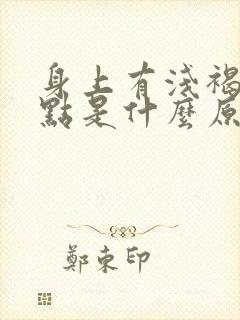 身上有淺褐
點是什麼原
鄭東印